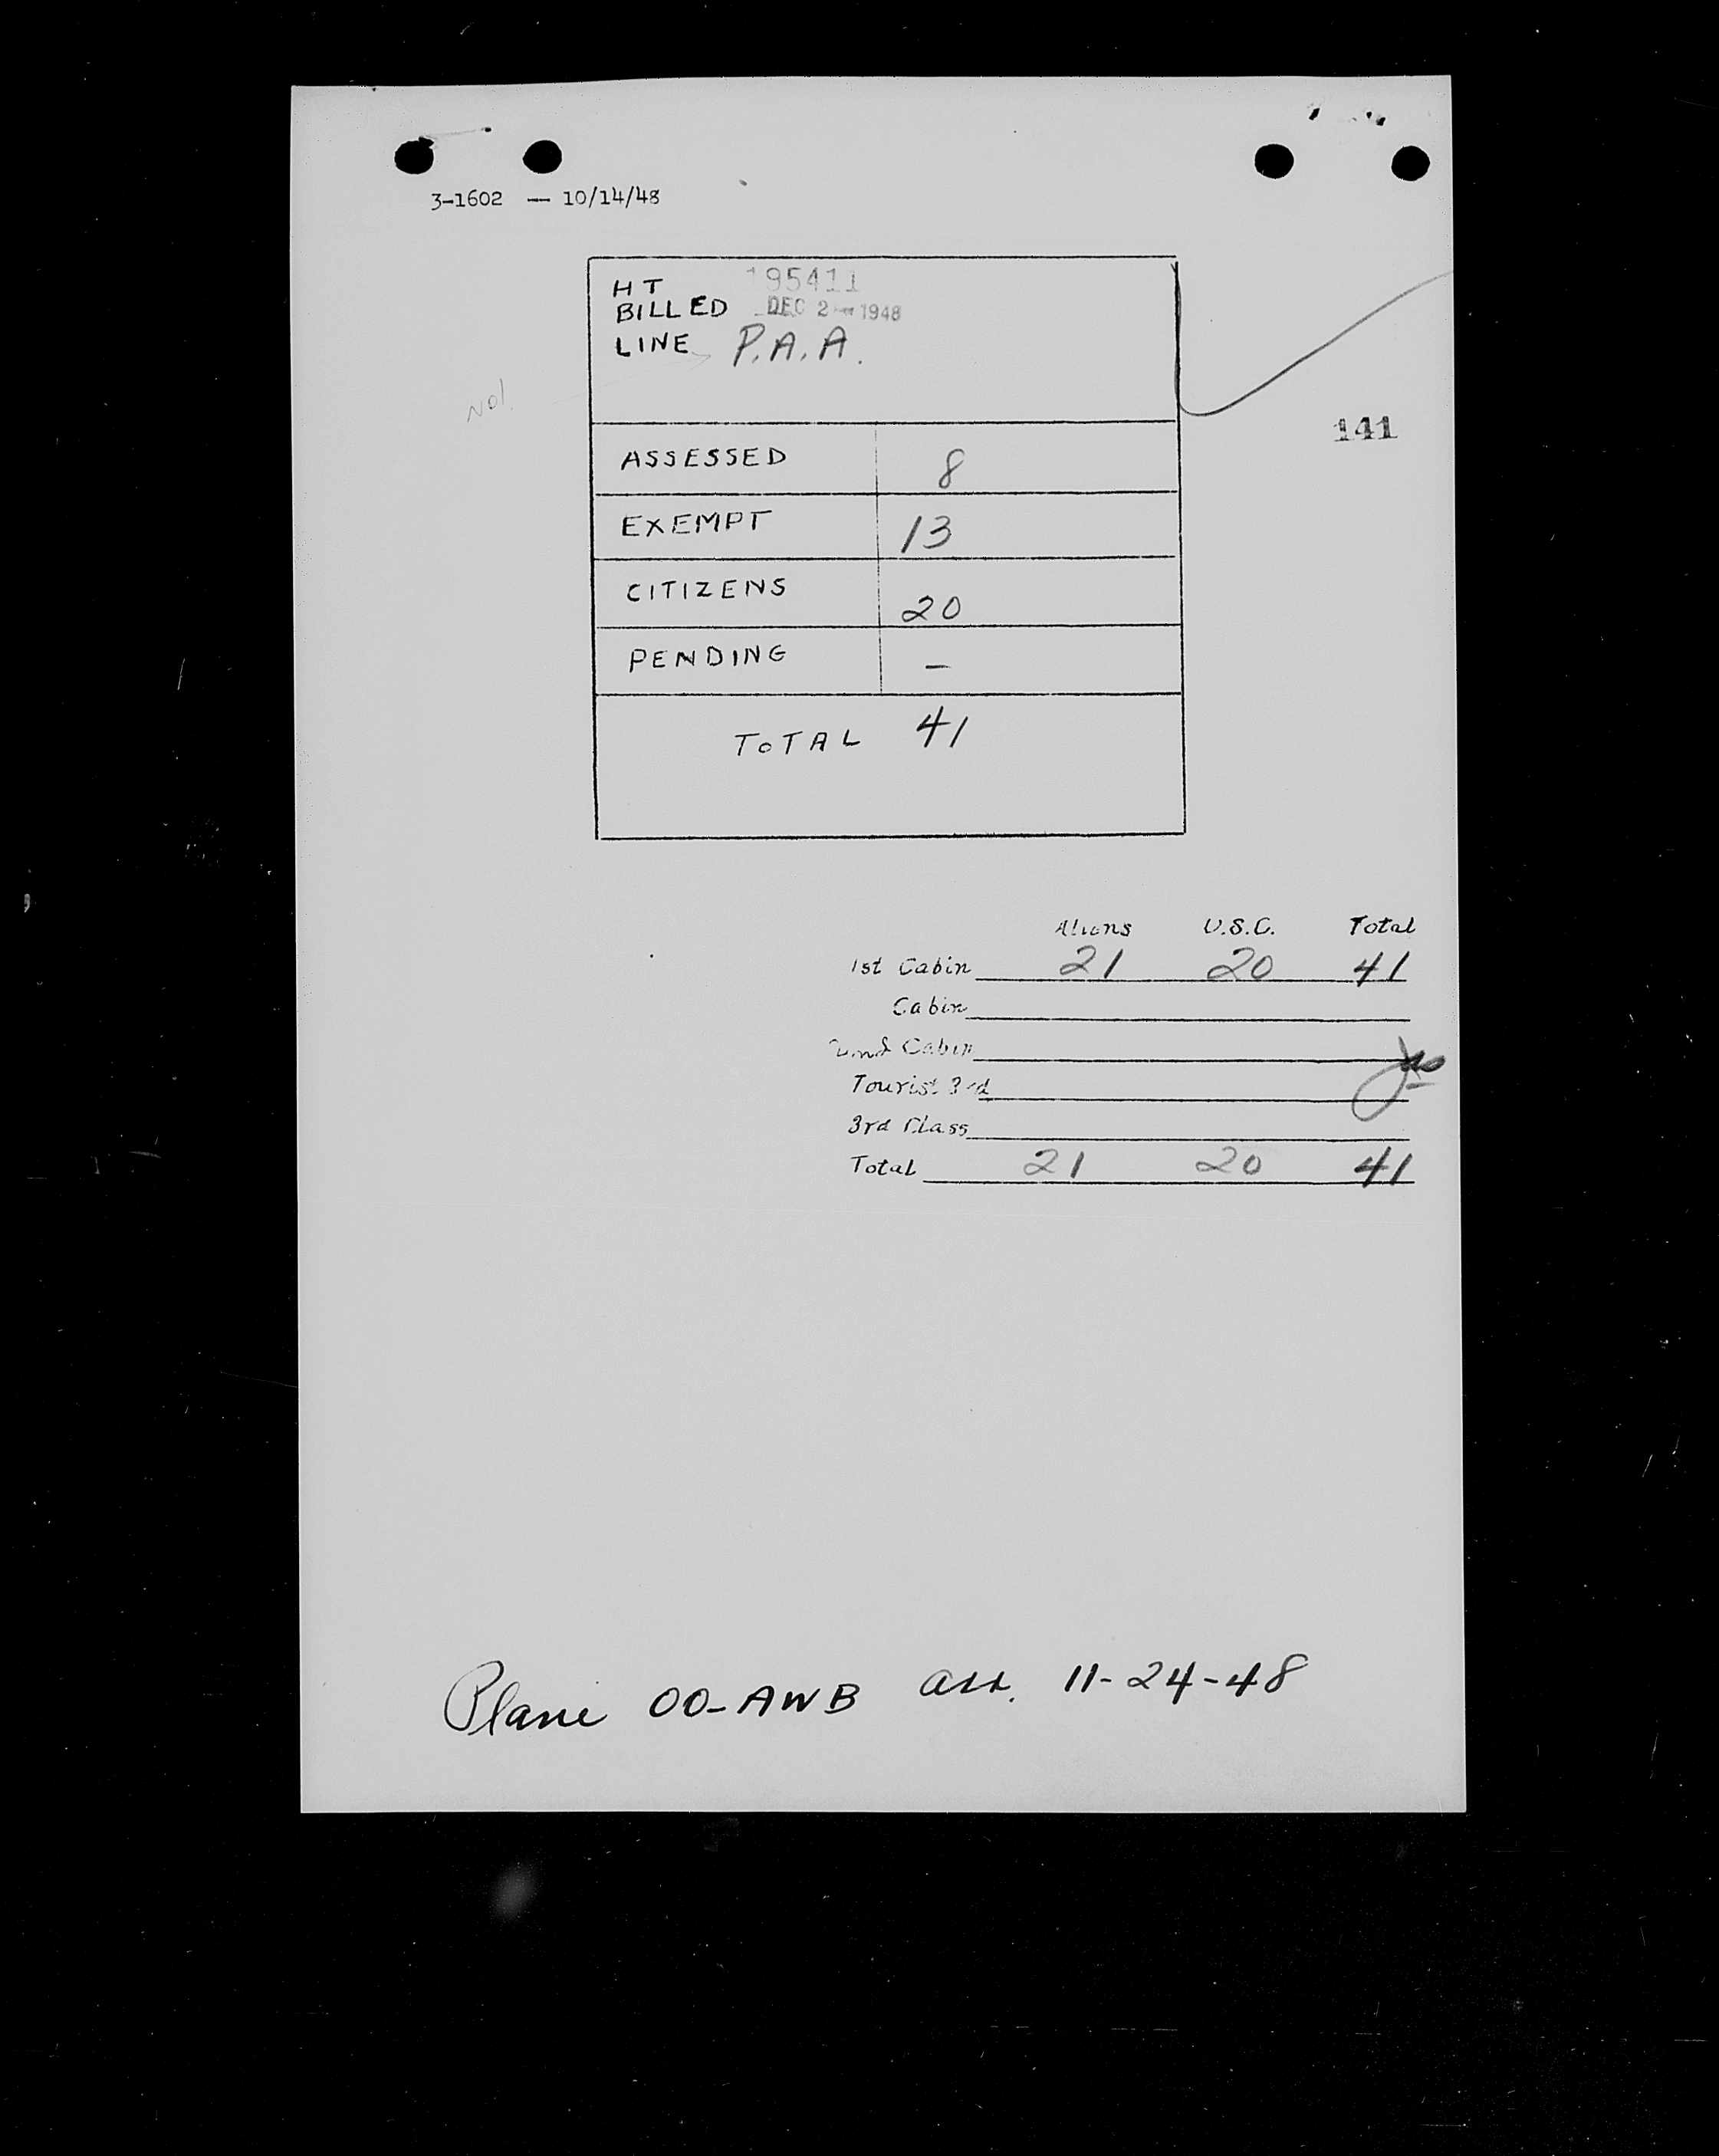 3-1602 — 10/14/48
HT 195411
BILLED DEC 2 - 1948
LINE P.A.A.
No1
141
ASSESSED 8
EXEMPT 13
CITIZENS 20
PENDING —
TOTAL 41
Aliens U.S.C. Total
1st Cabin 21 20 41
Cabin
2nd Cabin
Tourist 3rd
3rd Class
Total 21 20 41
Plane OO-AWB arr. 11-24-48